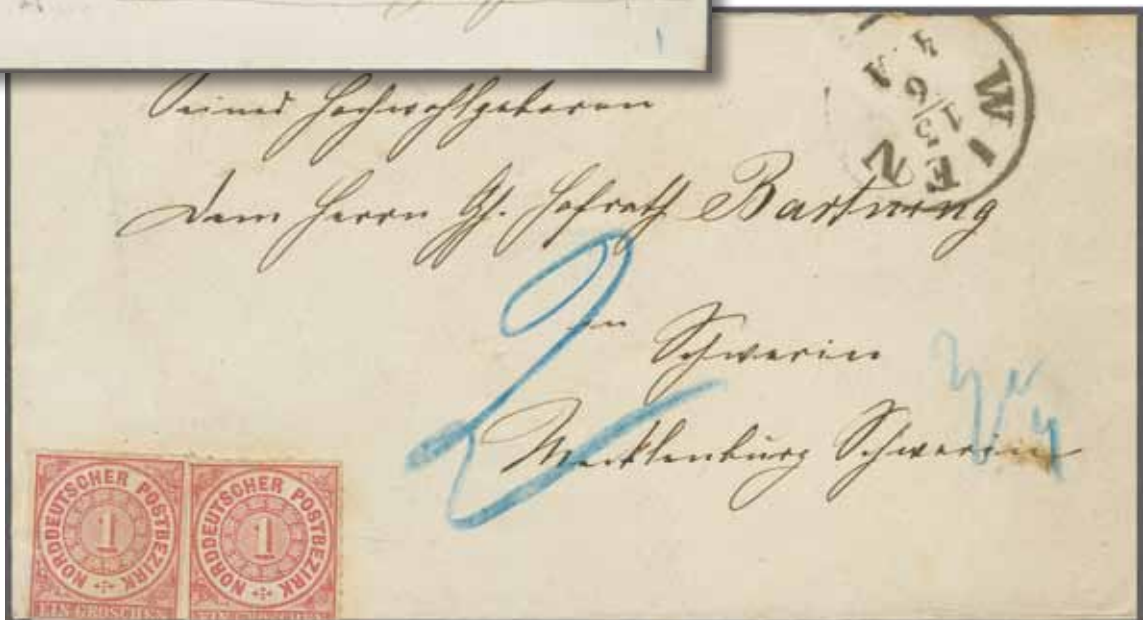 WIEN
1/3 6
4. A
Seiner Hochwohlgeboren
Dem Herrn Gh. Hofrath Bartning
in
Schwerin
Mecklenburg Schwerin
2
NORDDEUTSCHER POSTBEZIRK
1
EIN GROSCHEN
NORDDEUTSCHER POSTBEZIRK
1
EIN GROSCHEN